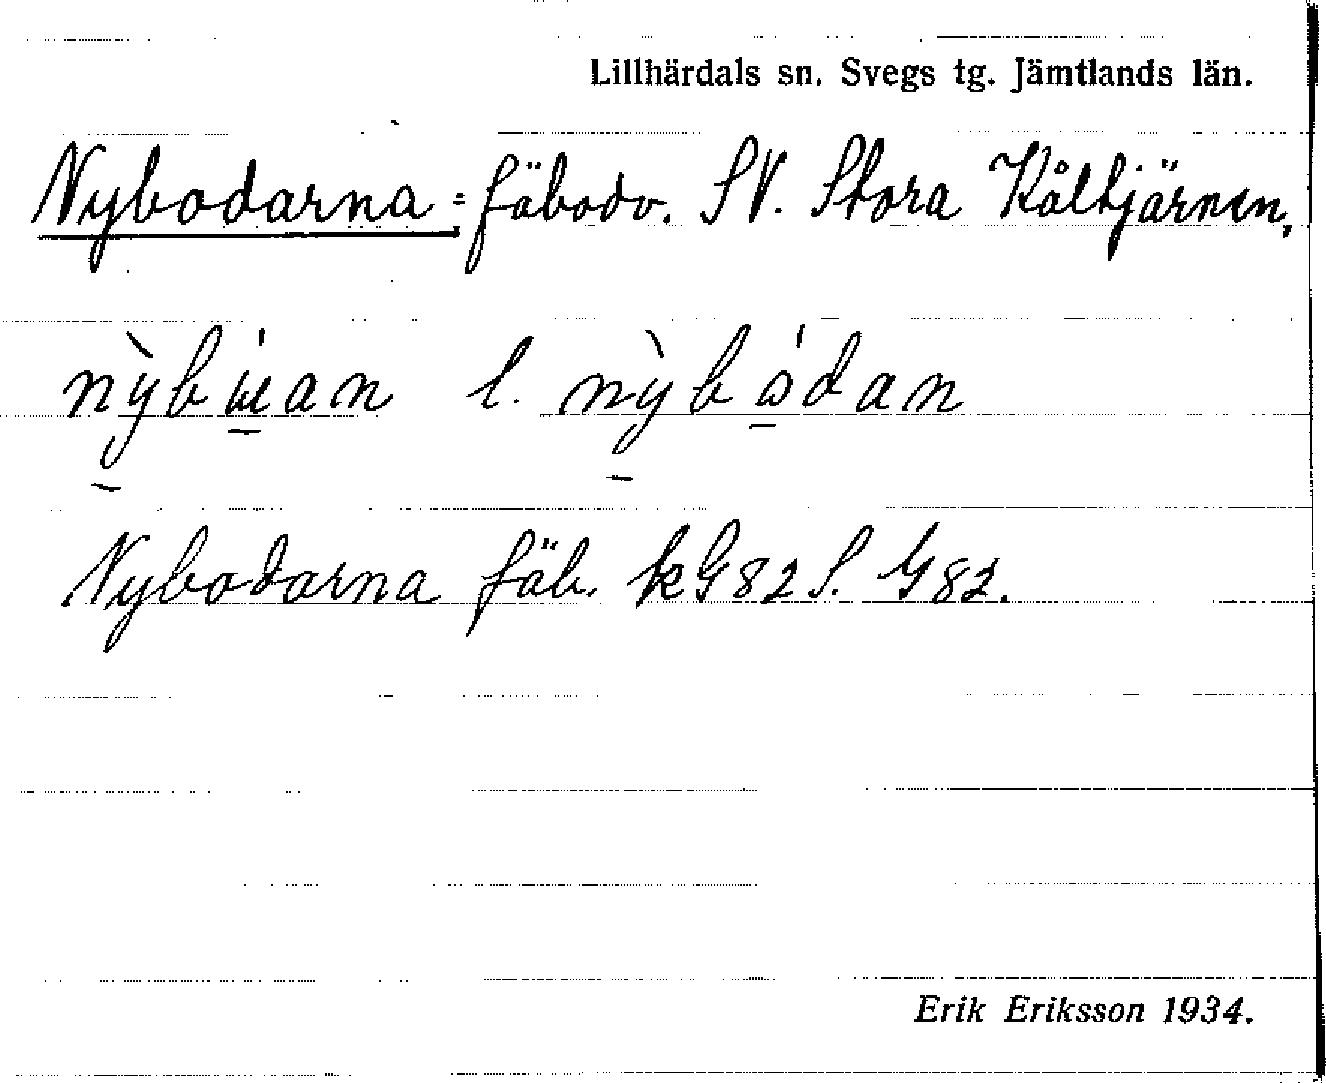 Lillhärdals sn. Svegs tg. Jämtlands län.
Nybodarna: fäbodv. SV. Stora Kåltjärnen,
l. nỳbódan
Nybodarna fäb. kG82S. G82.
Erik Eriksson 1934.